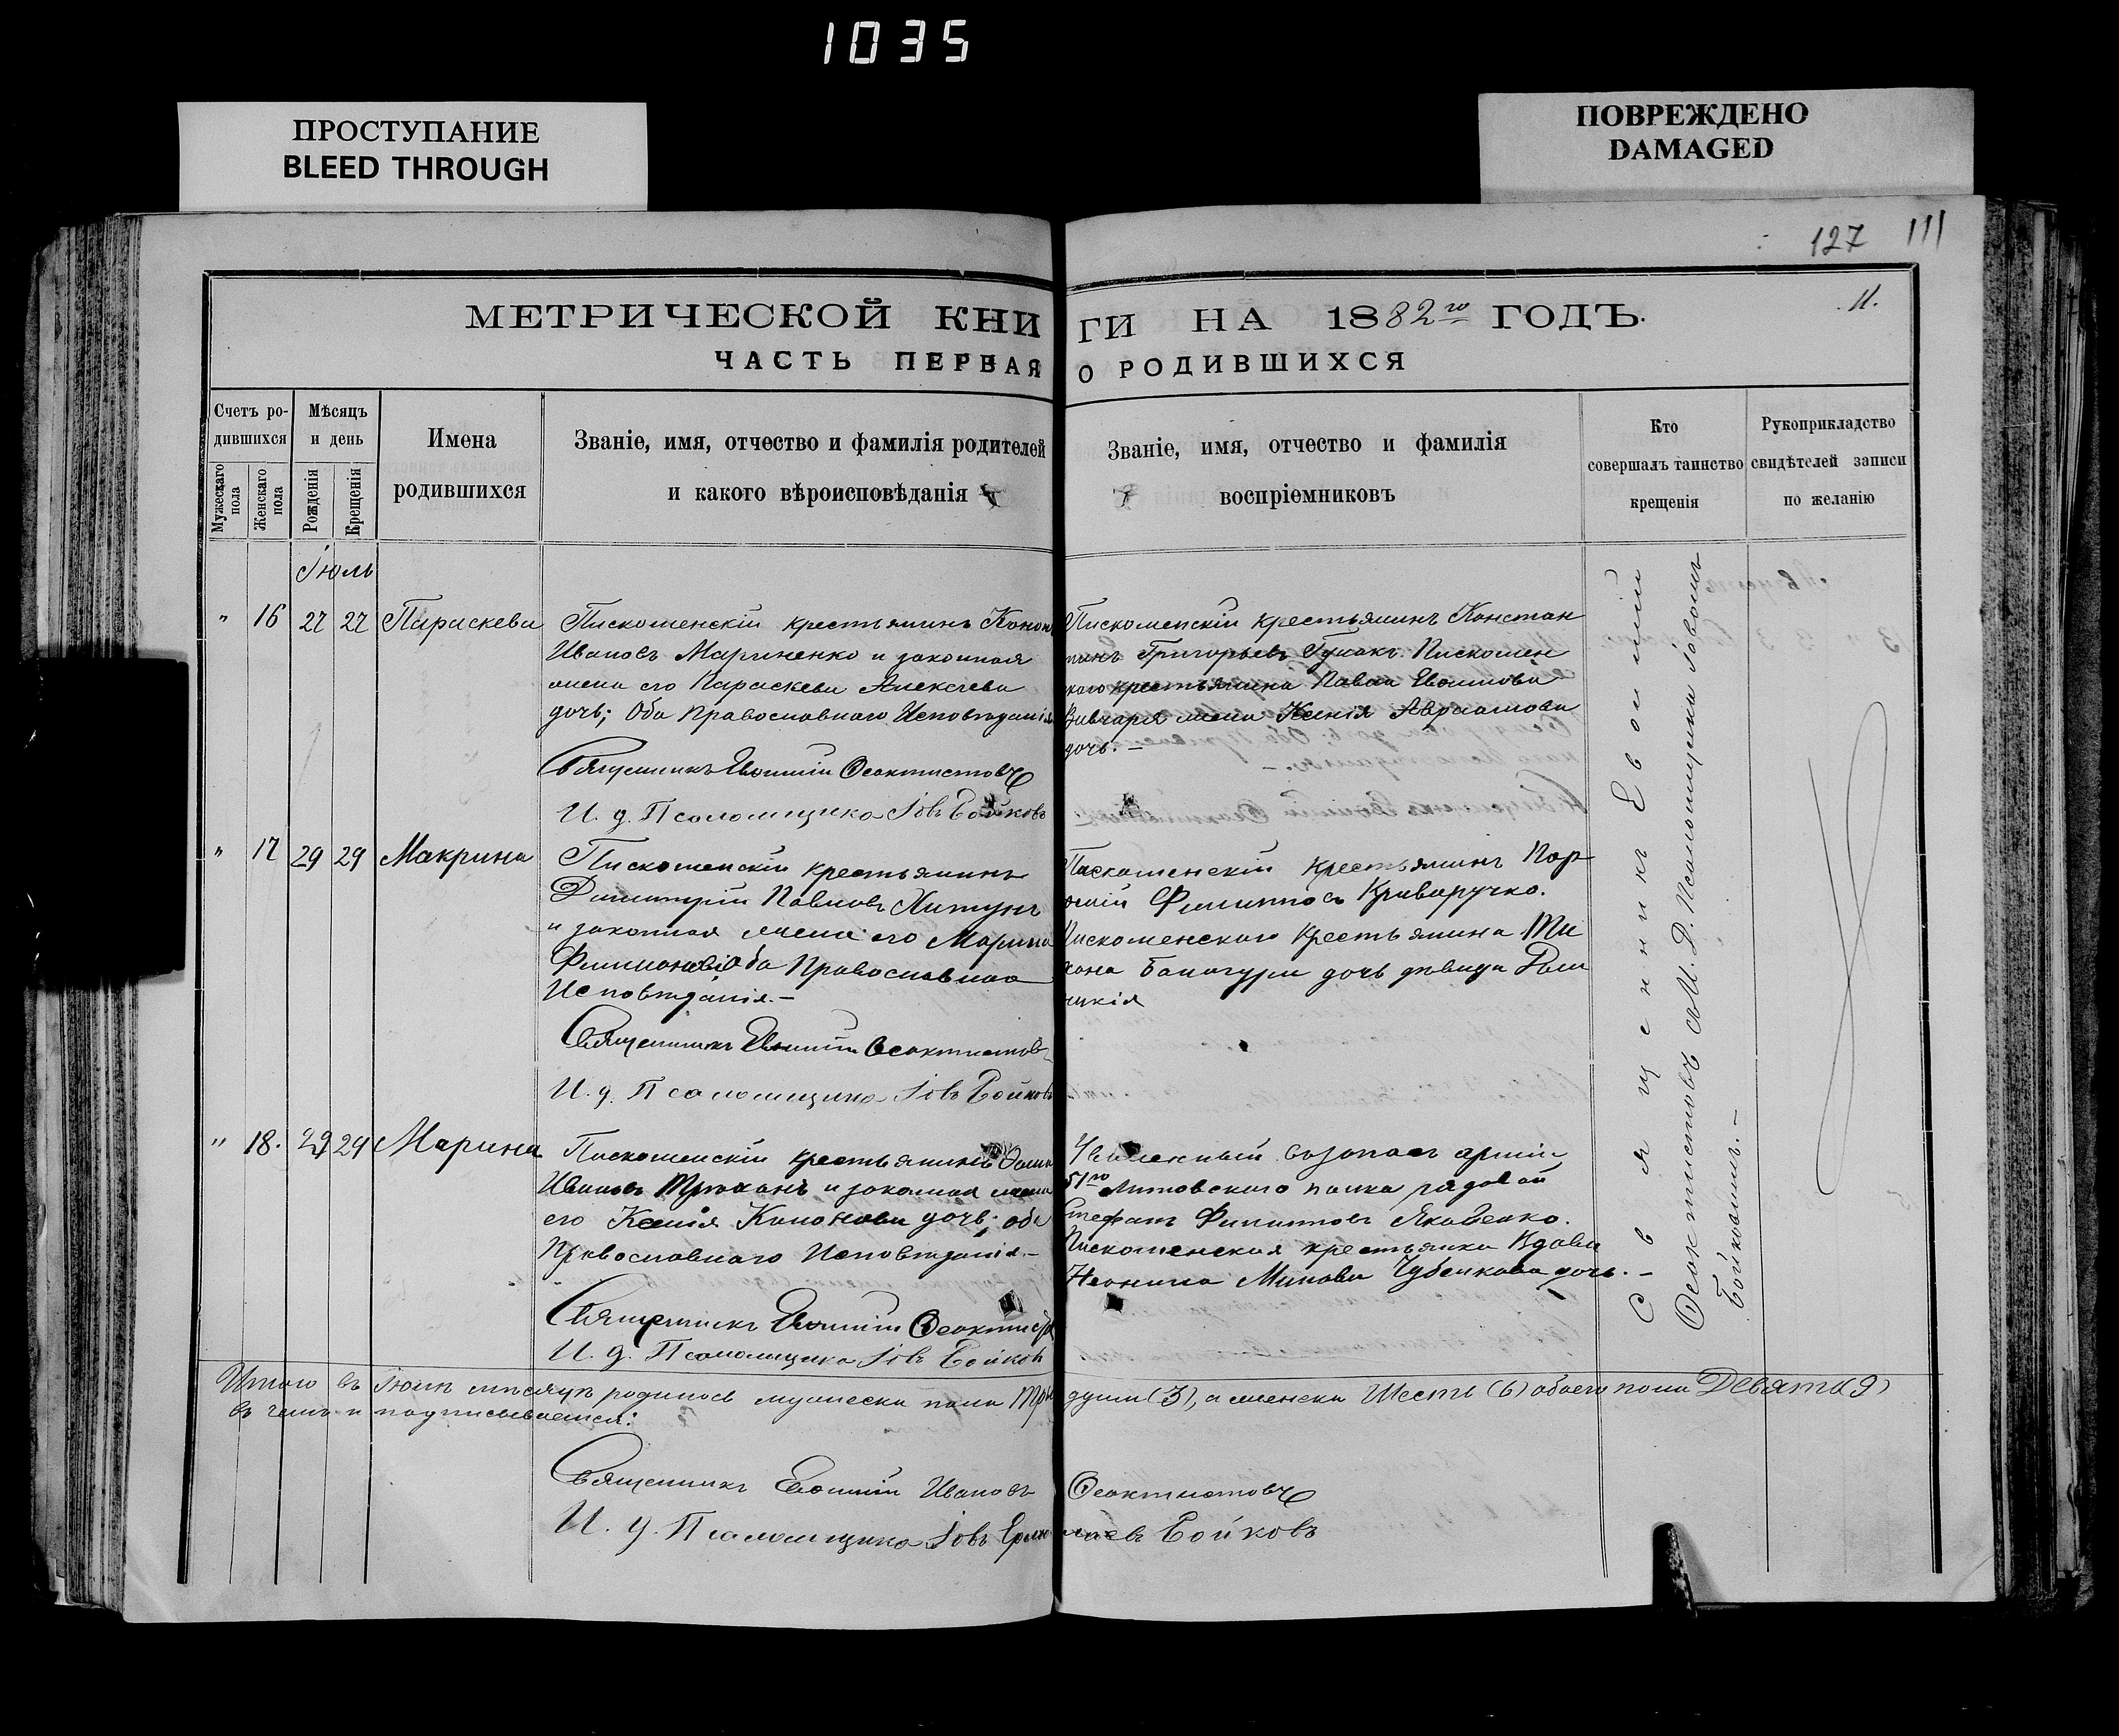 1035
ПРОСТУПАНИЕ
BLEED THROUGH
ПОВРЕЖДЕНО
DAMAGED
127 111
11.
МЕТРИЧЕСКОЙ КНИГИ НА 1882го ГОДЪ.
ЧАСТЬ ПЕРВАЯ О РОДИВШИХСЯ
Счетъ родившихся
Мужескаго пола
Женскаго пола
Мѣсяцъ и день
Рожденія
Крещенія
Имена
родившихся
Званіе, имя, отчество и фамилія родителей
и какого вѣроисповѣданія
Званіе, имя, отчество и фамилія
воспріемниковъ
Кто
совершалъ таинство
крещенія
Рукоприкладство
свидѣтелей записи
по желанію
Іюль
" 16 27 27 Параскева
Пискошенскій крестьянинъ Конон
Ивановъ Мариненко и законная
жена его Параскева Алексѣева
дочь; Оба Православнаго Исповѣданія
Священникъ Евѳимій Ѳеоктистовъ
И. д. Псаломщика Іовъ Бойковъ
Пискошенскій крестьянинъ Констан
тинъ Григорьевъ Гумакъ. Пискошен
скаго крестьянина Павла Евѳимова
Вивчаря жена Ксенія Авраамова
дочь. —
" 17 29 29 Макрина
Пискошенскій крестьянинъ
Димитрій Павловъ
и законная жена его Марина
Оба Православнаго
Исповѣданія. —
Священникъ Евѳимій Ѳеоктистовъ
И. д. Псаломщика Іовъ Бойковъ
Пискошенскій крестьянинъ Пор
фирій Филипповъ Криворучко.
Пискошенскаго крестьянина Ти
хона дочь дѣвица Дом
никія
" 18. 29 29 Марина
Пискошенскій крестьянинъ
Ивановъ и законная жена
его Ксенія Кононова дочь; оба
Православнаго Исповѣданія. —
Священникъ Евѳимій Ѳеоктистовъ
И. д. Псаломщика Іовъ Бойковъ
Уволенный въ запасъ арміи
51го Литовскаго полка рядовой
Стефанъ Филипповъ Яковенко.
Пискошенская крестьянка Вдова
Неонила Минова Чубенкова дочь. —
Священникъ Евѳимій
Ѳеоктистовъ съ И. Д. Псаломщика Іовомъ
Бойковымъ. —
Итого въ Іюлѣ мѣсяцѣ родилось мужеска пола Три души (3), а женска Шесть (6) обоего пола Девять (9)
въ чемъ и подписываемся:
Священникъ Евѳимій Ивановъ Ѳеоктистовъ
И. д. Псаломщика Іовъ Ермолаевъ Бойковъ